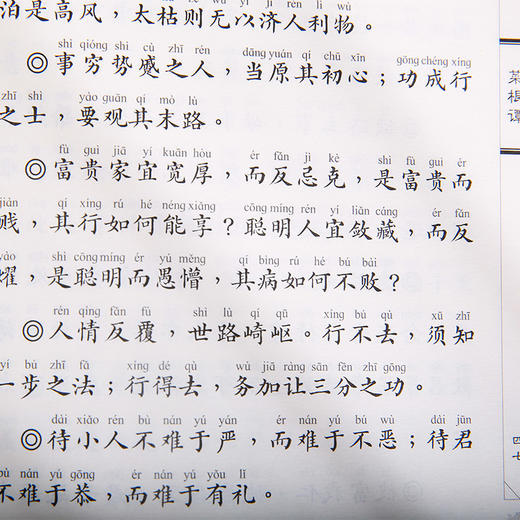 泊是高风，太枯则无以济人利物。
shì qióng shì cù zhī rén dāng yuán qí chū xīn gōng chéng xíng
◎事穷势蹙之人，当原其初心；功成行
zhī shì yào guān qí mò lù
之士，要观其末路。
fù guì jiā yí kuān hòu ér fǎn jì kè shì fù guì ér
◎富贵家宜宽厚，而反忌克，是富贵而
jiàn qí xíng rú hé néng xiǎng cōng míng rén yí liǎn cáng ér fǎn
贱，其行如何能享？聪明人宜敛藏，而反
yào shì cōng míng ér yú měng qí bìng rú hé bú bài
耀，是聪明而愚懵，其病如何不败？
rén qíng fǎn fù shì lù qí qū xíng bú qù xū zhī
◎人情反覆，世路崎岖。行不去，须知
yí bù zhī fǎ xíng dé qù wù jiā ràng sān fēn zhī gōng
一步之法；行得去，务加让三分之功。
dài xiǎo rén bù nán yú yán ér nán yú bú wù dài jūn
◎待小人不难于严，而难于不恶；待君
bù nán yú gōng ér nán yú yǒu lǐ
不难于恭，而难于有礼。
菜根谭
四七